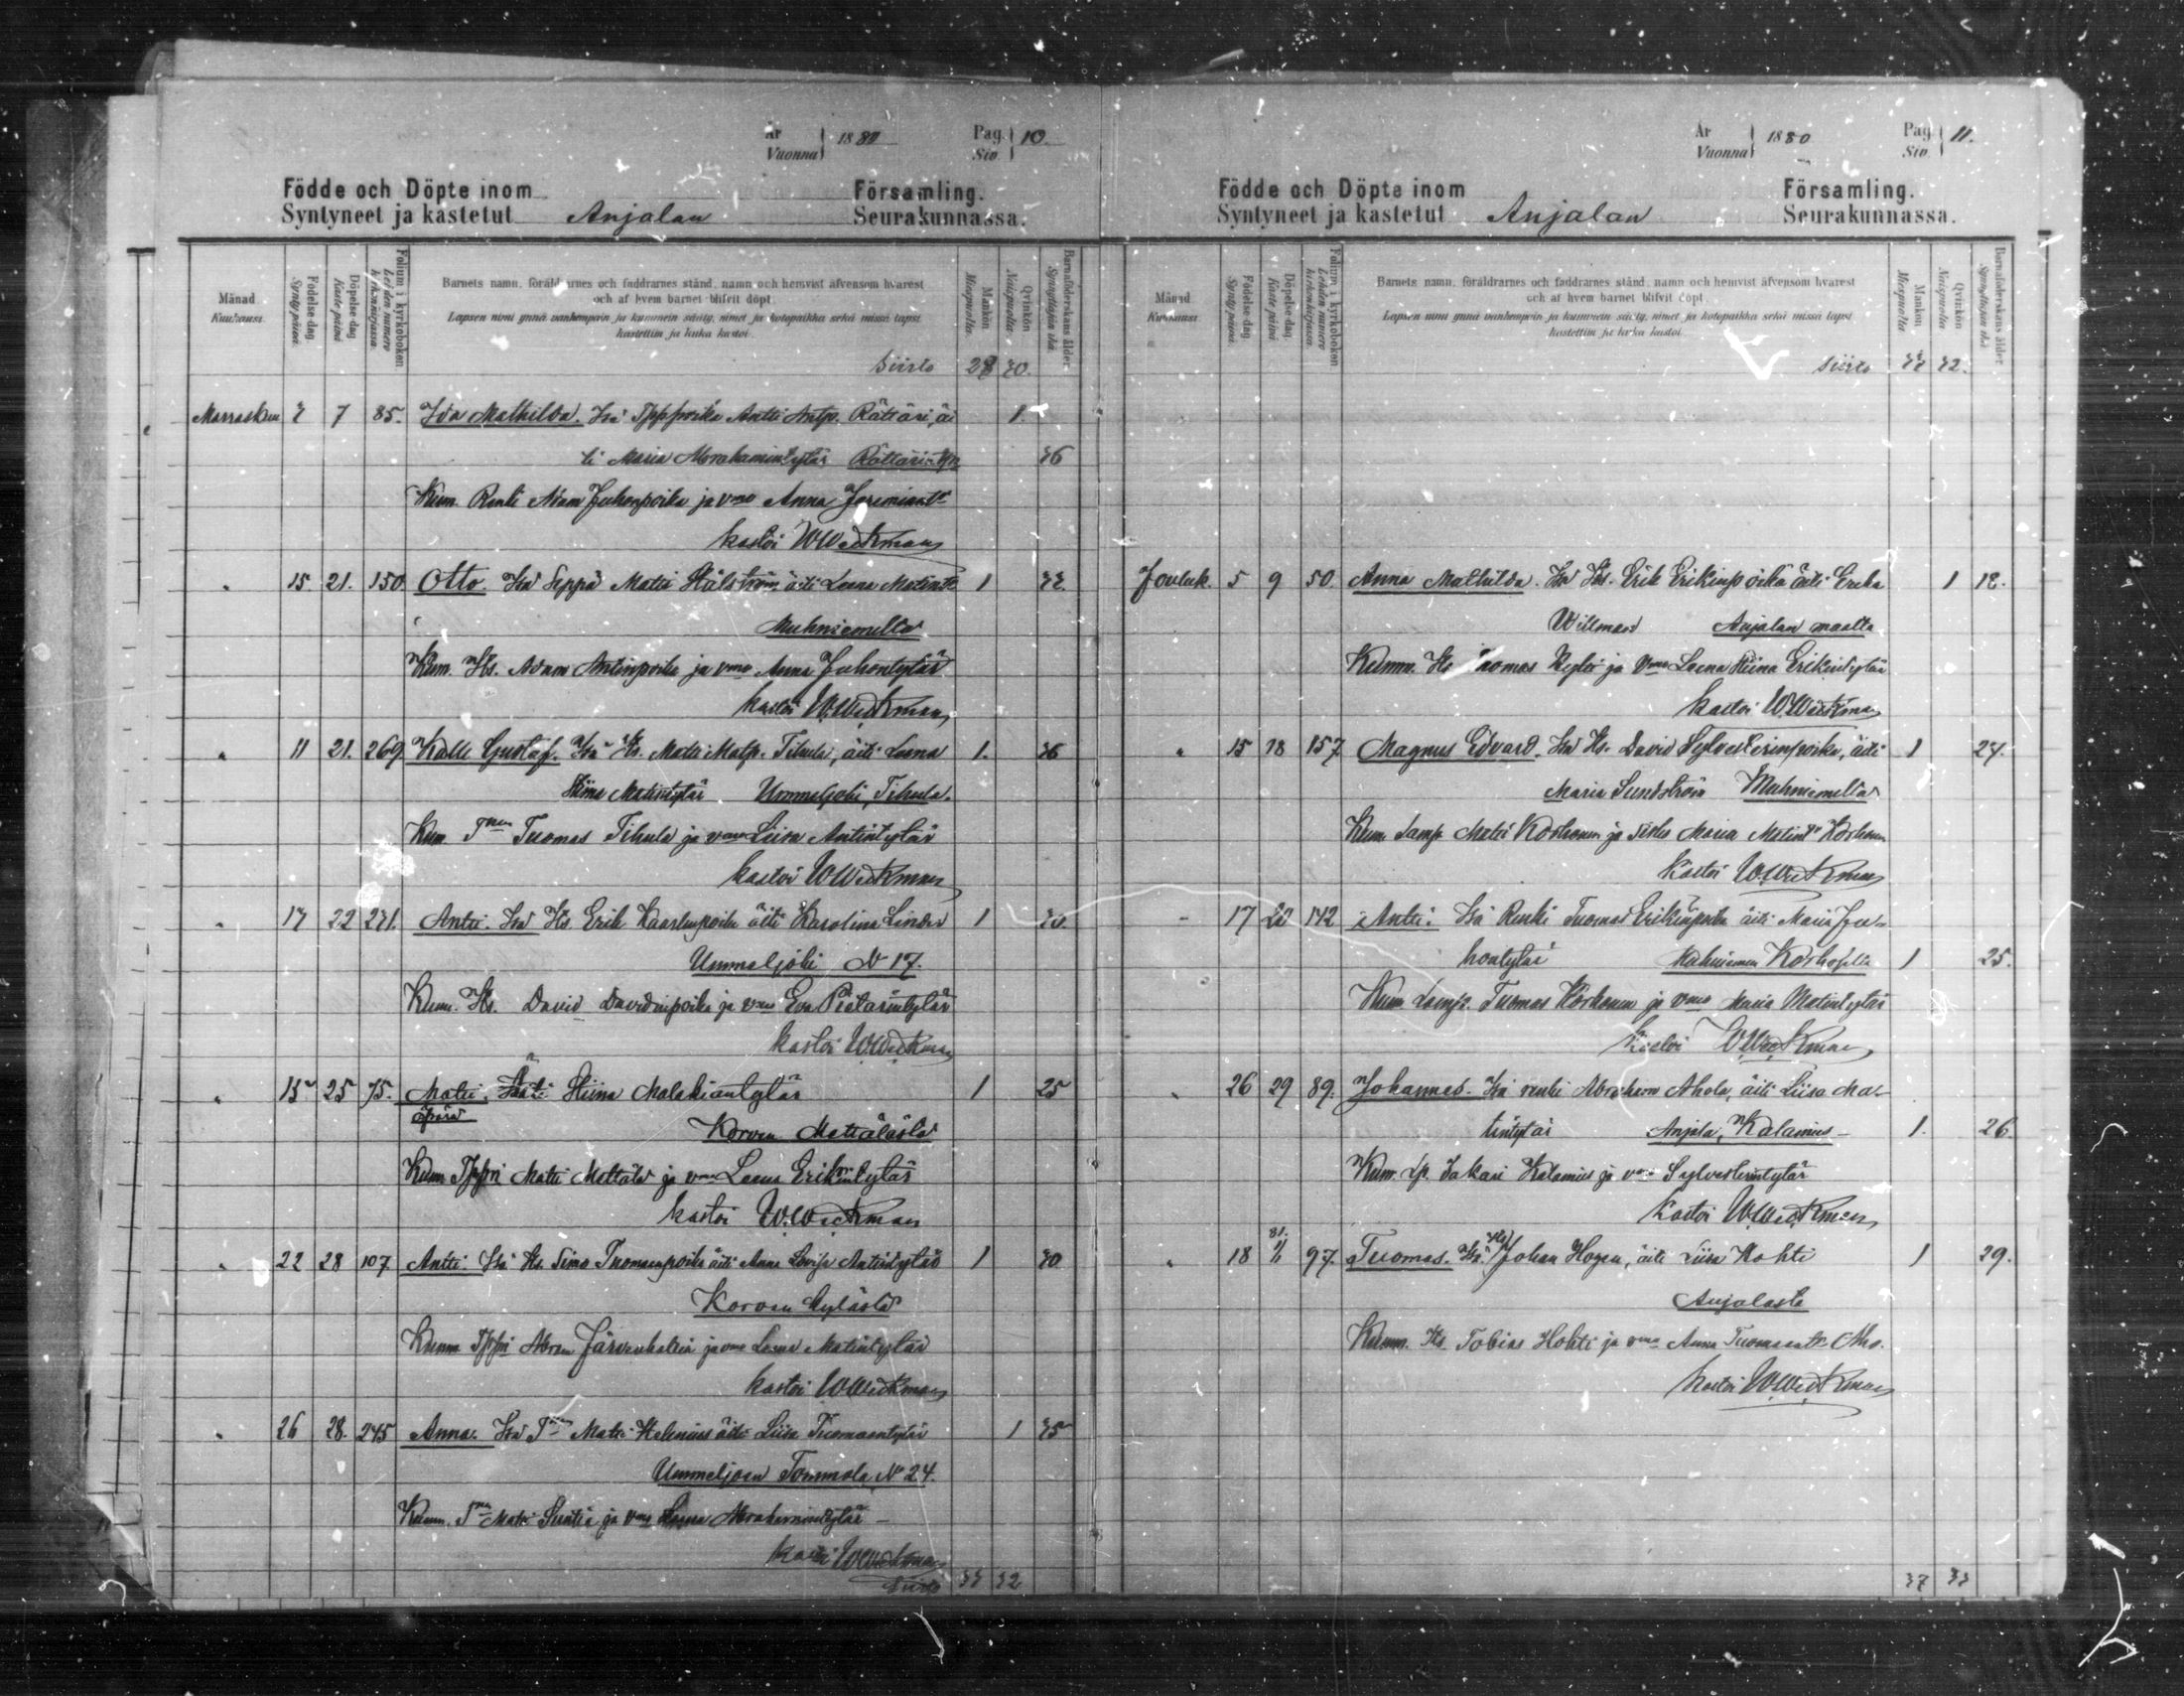 År Vuonna 1880 Pag. Siv. 10.
Födde och Döpte inom Församling.
Syntyneet ja kastetut Anjalan Seurakunnassa.
Månad Kuukausi.
Födelse-dag Syntypäivä.
Döpelse-dag. Kaste-päivä
Folium i kyrkoboken Lehden numero kirkonkirjassa.
Barnets namn, föräldrarnes och faddrarnes stånd, namn och hemvist äfvensom hvarest
och af hvem barnet blifvit döpt.
Lapsen nimi ynnä vanhempain ja kummein sääty, nimet ja kotopaikka sekä missä lapsi
kastettiin ja kuka kastoi.
Mankön Miespuolia.
Qvinkön Naispuolia
Barnaföderskans ålder Synnyttäjän ikä
Siirto 28 30.
Marrask. 3 7 85. Ida Mathilda. Isä Antti Antp. Rättäri, äi 1.
ti Maria Abrahamintytär 36
Kum. Renki Adam Juhonpoika ja vmo Anna Jeremiant.
kastoi W Wickman
" 15. 21. 150 Otto. Isä Seppä Matti Stålström äiti Leena Matint. 1 32.
Muhniemeltä
Kum. Its. Adam Antinpoika ja vmo Anna Juhontytär
kastoi W. Wickman
" 11 21. 269. Kalle Gustaf. Isä Its. Matti Matp. Tihula, äiti Leena 1. 36
Stiina Matintytär Ummeljoki, Tihula.
Kum. Tuomas Tihula ja vmo Liisa Antintytär
kastoi W Wickman
" 17 22 271. Antti. Isä Its. Erik Kaarlenpoika äiti Karolina Linder 1 30.
Ummeljoki N 17.
Kum. Its. David Davidinpoika ja vmo Eva Pietarintytär
kastoi W. Wickman
" 15 25 75. Matti. Äiti Stiina Malakiantytär 1 25
äpärä Korven Mattälästä
Kum. Matti Mattälä ja vmo Leena Erikintytär
kastoi W. Wickman
" 22 28 107 Antti. Isä Its. Simo Tuomaanpoika äiti Anna Lovisa Antintytär 1 30
Korven kylästä
Kumm. Abram ja vmo Leena Matintytär
kastoi W Wickman
" 26 28. 245 Anna. Isä Matti Helenius äiti Liisa Tuomaantytär 1 35
Ummeljoen Tommola N 24.
Kumm. Matti ja vmo Leena Abrahamintytär
kastoi W Wickman
Siirto 33 32
År Vuonna 1880 Pag. Siv. 11.
Födde och Döpte inom Församling.
Syntyneet ja kastetut Anjalan Seurakunnassa.
Månad Kuukausi.
Födelse-dag Syntypäivä.
Döpelse-dag. Kaste-päivä
Folium i kyrkoboken Lehden numero kirkonkirjassa.
Barnets namn, föräldrarnes och faddrarnes stånd, namn och hemvist äfvensom hvarest
och af hvem barnet blifvit döpt.
Lapsen nimi ynnä vanhempain ja kummein sääty, nimet ja kotopaikka sekä missä lapsi
kastettiin ja kuka kastoi.
Mankön Miespuolia
Qvinkön Naispuolia
Barnaföderskans ålder Synnyttäjän ikä
Siirto 33 32.
Jouluk. 5 9 50. Anna Mathilda. Isä Its. Erik Erikinpoika äiti Erika 1
Willman Anjalan maalta
Kumm. Its. Tuomas ja vmo Leena Stiina Erikintytär
kastoi W. Wickman
" 15 18 157 Magnus Edvard. Isä Its. David Sylvesterinpoika, äiti 1 27.
Maria Sundström Muhniemeltä
Kum. Lamp. Matti Korhonen ja Maria Matint. Korhonen
kastoi W. Wickman
" 17 22 142 Antti. Isä Renki Tuomas Erikinpoika äiti Maria Ju-
hontytär Muhniemen 1 25.
Kum. Lamp. Tuomas Korhonen ja vmo Maria Matintytär
kastoi W. Wickman
" 26 29 89. Johannes. Isä renki Abraham Ahola, äiti Liisa Ma-
tintytär Anjala, Kalamies 1. 26.
Kum. Lp. Sakari Kalamies ja vmo Sylvesterintytär
kastoi W. Wickman
" 18 1/1 81. 97. Tuomas. Isä Its. Johan Hogen, äiti Liisa Hohti 1 29.
Anjalasta
Kumm. Its. Tobias Hohti ja vmo Anna Tuomaant. Aho.
kastoi W. Wickman
37 33